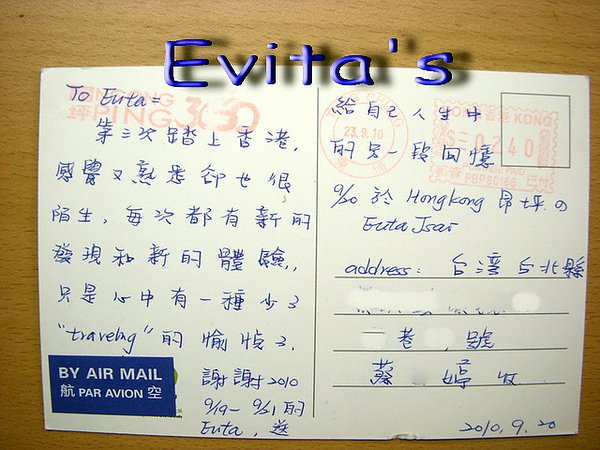 Evita's
To Evita=
NGONG
坪PING360
第三次踏上香港,
感覺又熟悉卻也很
陌生,每次都有新的
發現和新的體驗,
只是心中有一種少了
"traveling"的愉悅了.
謝謝2010
9/19~9/21的
Evita, 送
BY AIR MAIL
航 PAR AVION 空
給自己人生中
的另一段回憶
9/20 於 Hongkong 昂坪の
Evita Tsai
23.9.10
HONG KONG
0240
address: 台灣台北縣
巷, 號
蔡 婷 收
2010.9.20